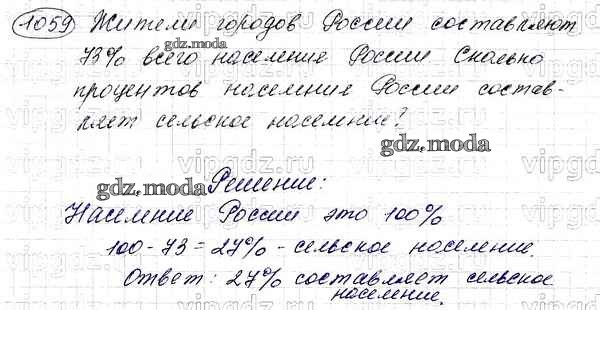 1059 Жители городов России составляют
gdz.moda
73% всего населения России Сколько
процентов населения России состав-
ляет сельское население?
gdz.moda
gdz.moda Решение:
Население России это 100%
100-73=27% - сельское население.
Ответ: 27% составляет сельское
население.
vipgdz.ru